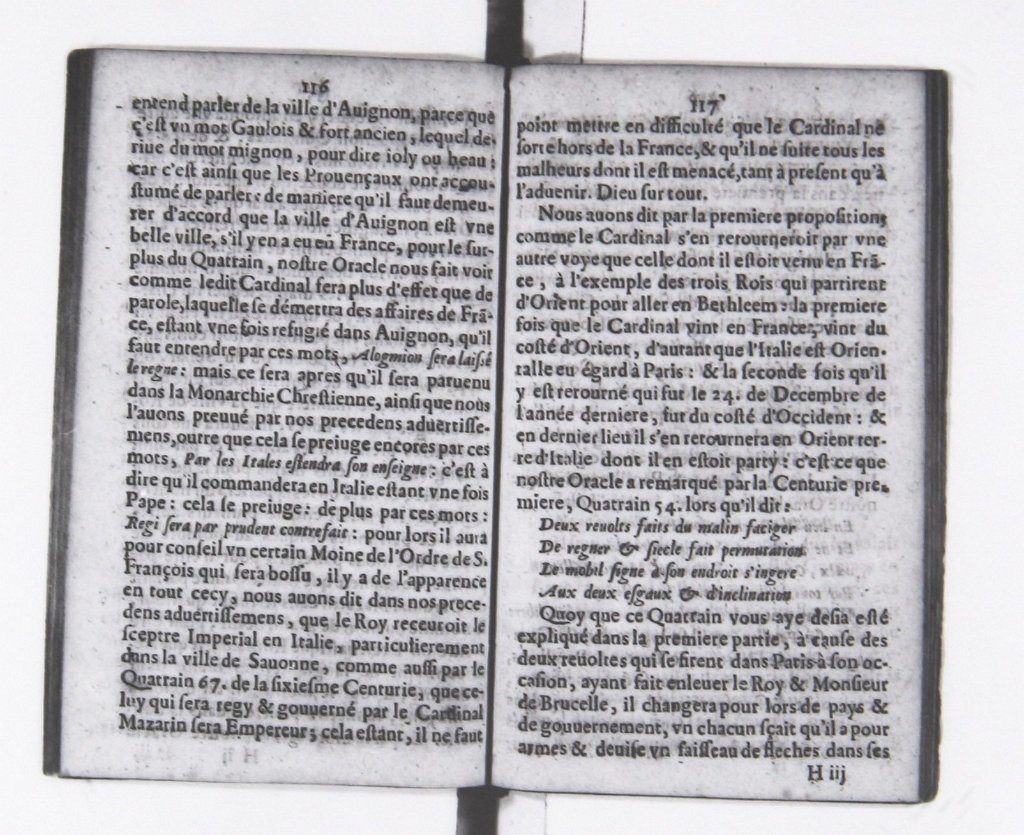 116
entend parler de la ville d'Auignon, parce que
c'est vn mot Gaulois & fort ancien, lequel de-
riue du mot mignon, pour dire ioly ou beau :
car c'est ainsi que les Prouençaux ont accou-
stumé de parler : de maniere qu'il faut demeu-
rer d'accord que la ville d'Auignon est vne
belle ville, s'il y en a eu eu France, pour le sur-
plus du Quatrain, nostre Oracle nous fait voir
comme ledit Cardinal sera plus d'effet que de
parole, laquelle se démettra des affaires de Frã-
ce, estant vne fois refugié dans Auignon, qu'il
faut entendre par ces mots, Alogmion sera laissé
le regne : mais ce sera apres qu'il sera paruenu
dans la Monarchie Chrestienne, ainsi que nous
l'auons preuué par nos precedens aduertisse-
mens, outre que cela se preiuge encores par ces
mots, Par les Itales estendra son enseigne : c'est à
dire qu'il commandera en Italie estant vne fois
Pape : cela se preiuge : de plus par ces mots :
Regi sera par prudent contrefait : pour lors il aura
pour conseil vn certain Moine de l'Ordre de S.
François qui sera bossu, il y a de l'apparence
en tout cecy, nous auons dit dans nos prece-
dens aduertissemens, que le Roy receuroit le
sceptre Imperial en Italie, particulierement
dans la ville de Sauonne, comme aussi par le
Quatrain 67. de la sixiesme Centurie, que ce-
luy qui sera regy & gouuerné par le Cardinal
Mazarin sera Empereur ; cela estant, il ne faut
117
point mettre en difficulté que le Cardinal ne
sorte hors de la France, & qu'il ne suite tous les
malheurs dont il est menacé, tant à present qu'à
l'aduenir. Dieu sur tout.
Nous auons dit par la premiere proposition,
comme le Cardinal s'en retourneroit par vne
autre voye que celle dont il estoit venu en Frã-
ce, à l'exemple des trois Rois qui partirent
d'Orient pour aller en Bethleem : la premiere
fois que le Cardinal vint en France, vint du
costé d'Orient, d'autant que l'Italie est Orien-
talle eu égard à Paris : & la seconde fois qu'il
y est retourné qui fut le 24. de Decembre de
l'année derniere, fut du costé d'Occident : &
en dernier lieu il s'en retournera en Orient ter-
re d'Italie dont il en estoit party : c'est ce que
nostre Oracle a remarqué par la Centurie pre-
miere, Quatrain 54. lors qu'il dit :
Deux reuolts faits du malin faciger
De regner & siecle fait permutation
Le mobil signe à son endroit s'ingere
Aux deux esgaux & d'inclination
Quoy que ce Quatrain vous aye desia esté
expliqué dans la premiere partie, à cause des
deux reuoltes qui se firent dans Paris à son oc-
casion, ayant fait enleuer le Roy & Monsieur
de Brucelle, il changera pour lors de pays &
de gouuernement, vn chacun sçait qu'il a pour
armes & deuise vn faisseau de fleches dans ses
H iij